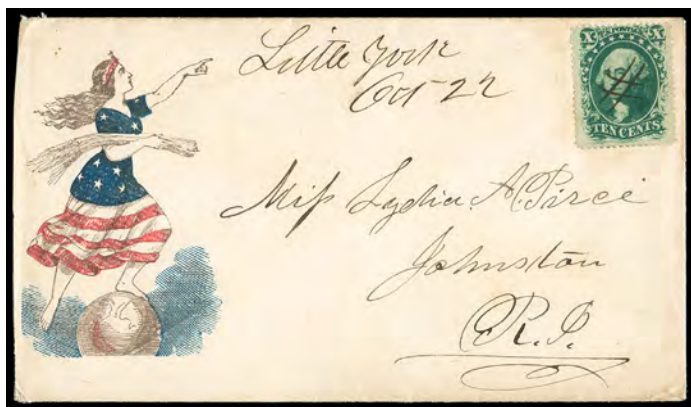 Little York
Oct 22
X U.S. POSTAGE X
TEN CENTS.
Miss Lydia A. Pirce
Johnston
R.I.